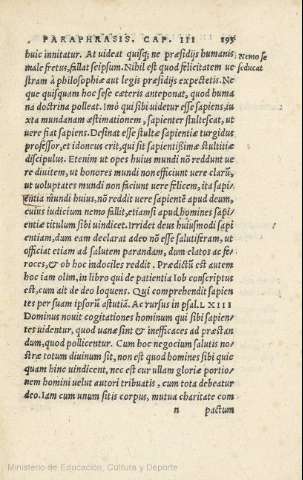 PARAPHRASIS. CAP. III 193
huic innitatur. At uideat quisq; ne præsidijs humanis
Nemo se
male fretus, fallat seipsum. Nihil est quod felicitatem ue
seducat
stram à philosophiæ aut legis præsidijs expectetis. Ne
que quisquam hoc sese cæteris anteponat, quod huma
na doctrina polleat. Imò qui sibi uidetur esse sapiens, iu
xta mundanam æstimationem, sapienter stultescat, ut
uere fiat sapiens. Desinat esse stultæ sapientiæ turgidus
professor, et idoneus erit, qui sit sapientissimæ stultitiæ
discipulus. Etenim ut opes huius mundi nō reddunt ue
re diuitem, ut honores mundi non efficiunt uere clarū,
ut uoluptates mundi non faciunt uere felicem, ita sapi
entia mūdi huius, nō reddit uere sapientē apud deum,
cuius iudicium nemo fallit, etiamsi apud homines sapi
entiæ titulum sibi uindicet. Irridet deus huiusmodi sapi
entiam, dum eam declarat adeo nō esse salutiferam, ut
officiat etiam ad salutem parandam, dum elatos ac fe-
roces, & ob hoc indociles reddit. Prædictū est autem
hoc iam olim, in libro qui de patientia Iob conscriptus
est, cum ait de deo loquens. Qui comprehendit sapien
tes per suam ipsorū astutiā. Ac rursus in psal. LXIII
Dominus nouit cogitationes hominum qui sibi sapien-
tes uidentur, quod uanæ sint & inefficaces ad præstan
dum, quod pollicentur. Cum hoc negocium salutis no-
stræ totum diuinum sit, non est quod homines sibi quic
quam hinc uindicent, nec est cur ullam gloriæ portio-
nem homini uelut autori tribuatis, cum tota debeatur
deo. Iam cum unum sitis corpus, mutua charitate com
n pactum
Ministerio de Educación, Cultura y Deporte